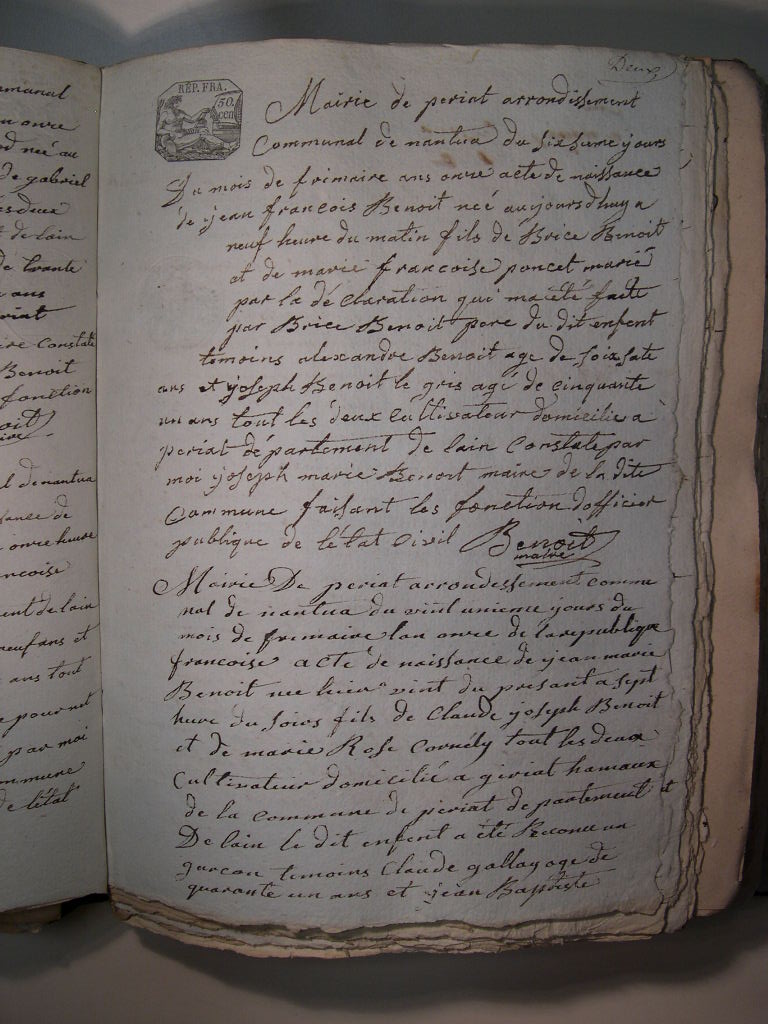 munal
onre
né au
de gabriel
deux
de lain
de trante
ans
riat
ire Constate
Benoit
fonction
oit
aire
l de nantua
sance de
onre heure
ncoise
ent de lain
neuf ans et
ans tout
e pour net
par moi
mmune
de létat
Deux
RÉP. FRA.
50.
cen
Mairie de periat arrondissement
Communal de nantua du sixsume jours
Du mois de frimaire ans onre acte de naissance
de jean francois Benoit neé aujoursdhuy a
neuf heure du matin fils de Brice Benoit
et de marie francoise poncet marié
par la dé Claration qui ma été faite
par Brice Benoit pere du dit enfent
temoins alexandre Benoit age de soixsate
ans et joseph Benoit le gris agé de cinquante
un ans tout les deux Cultivateur domicilié a
periat département de lain Constate par
moi joseph marie Benoit maire de la dite
Commune faisant les fonction dofficier
publique de létat Civil Benoit
maire
Mairie De periat arrondissement commu
nal de nantua du vint unieme jours du
mois de frimaire lan onre de la republique
francoise acte de naissance de jean marie
Benoit neé hier vint du presant a sept
heure du soirs fils de Claude joseph Benoit
et de marie Rose Cornély tout les deux
Cultivateur domicilié a giriat hamaux
de la commune de periat de partement
De lain le dit enfent a été Reconu un
garcon temoins Claude gallay age de
quarante un ans et jean Baptiste